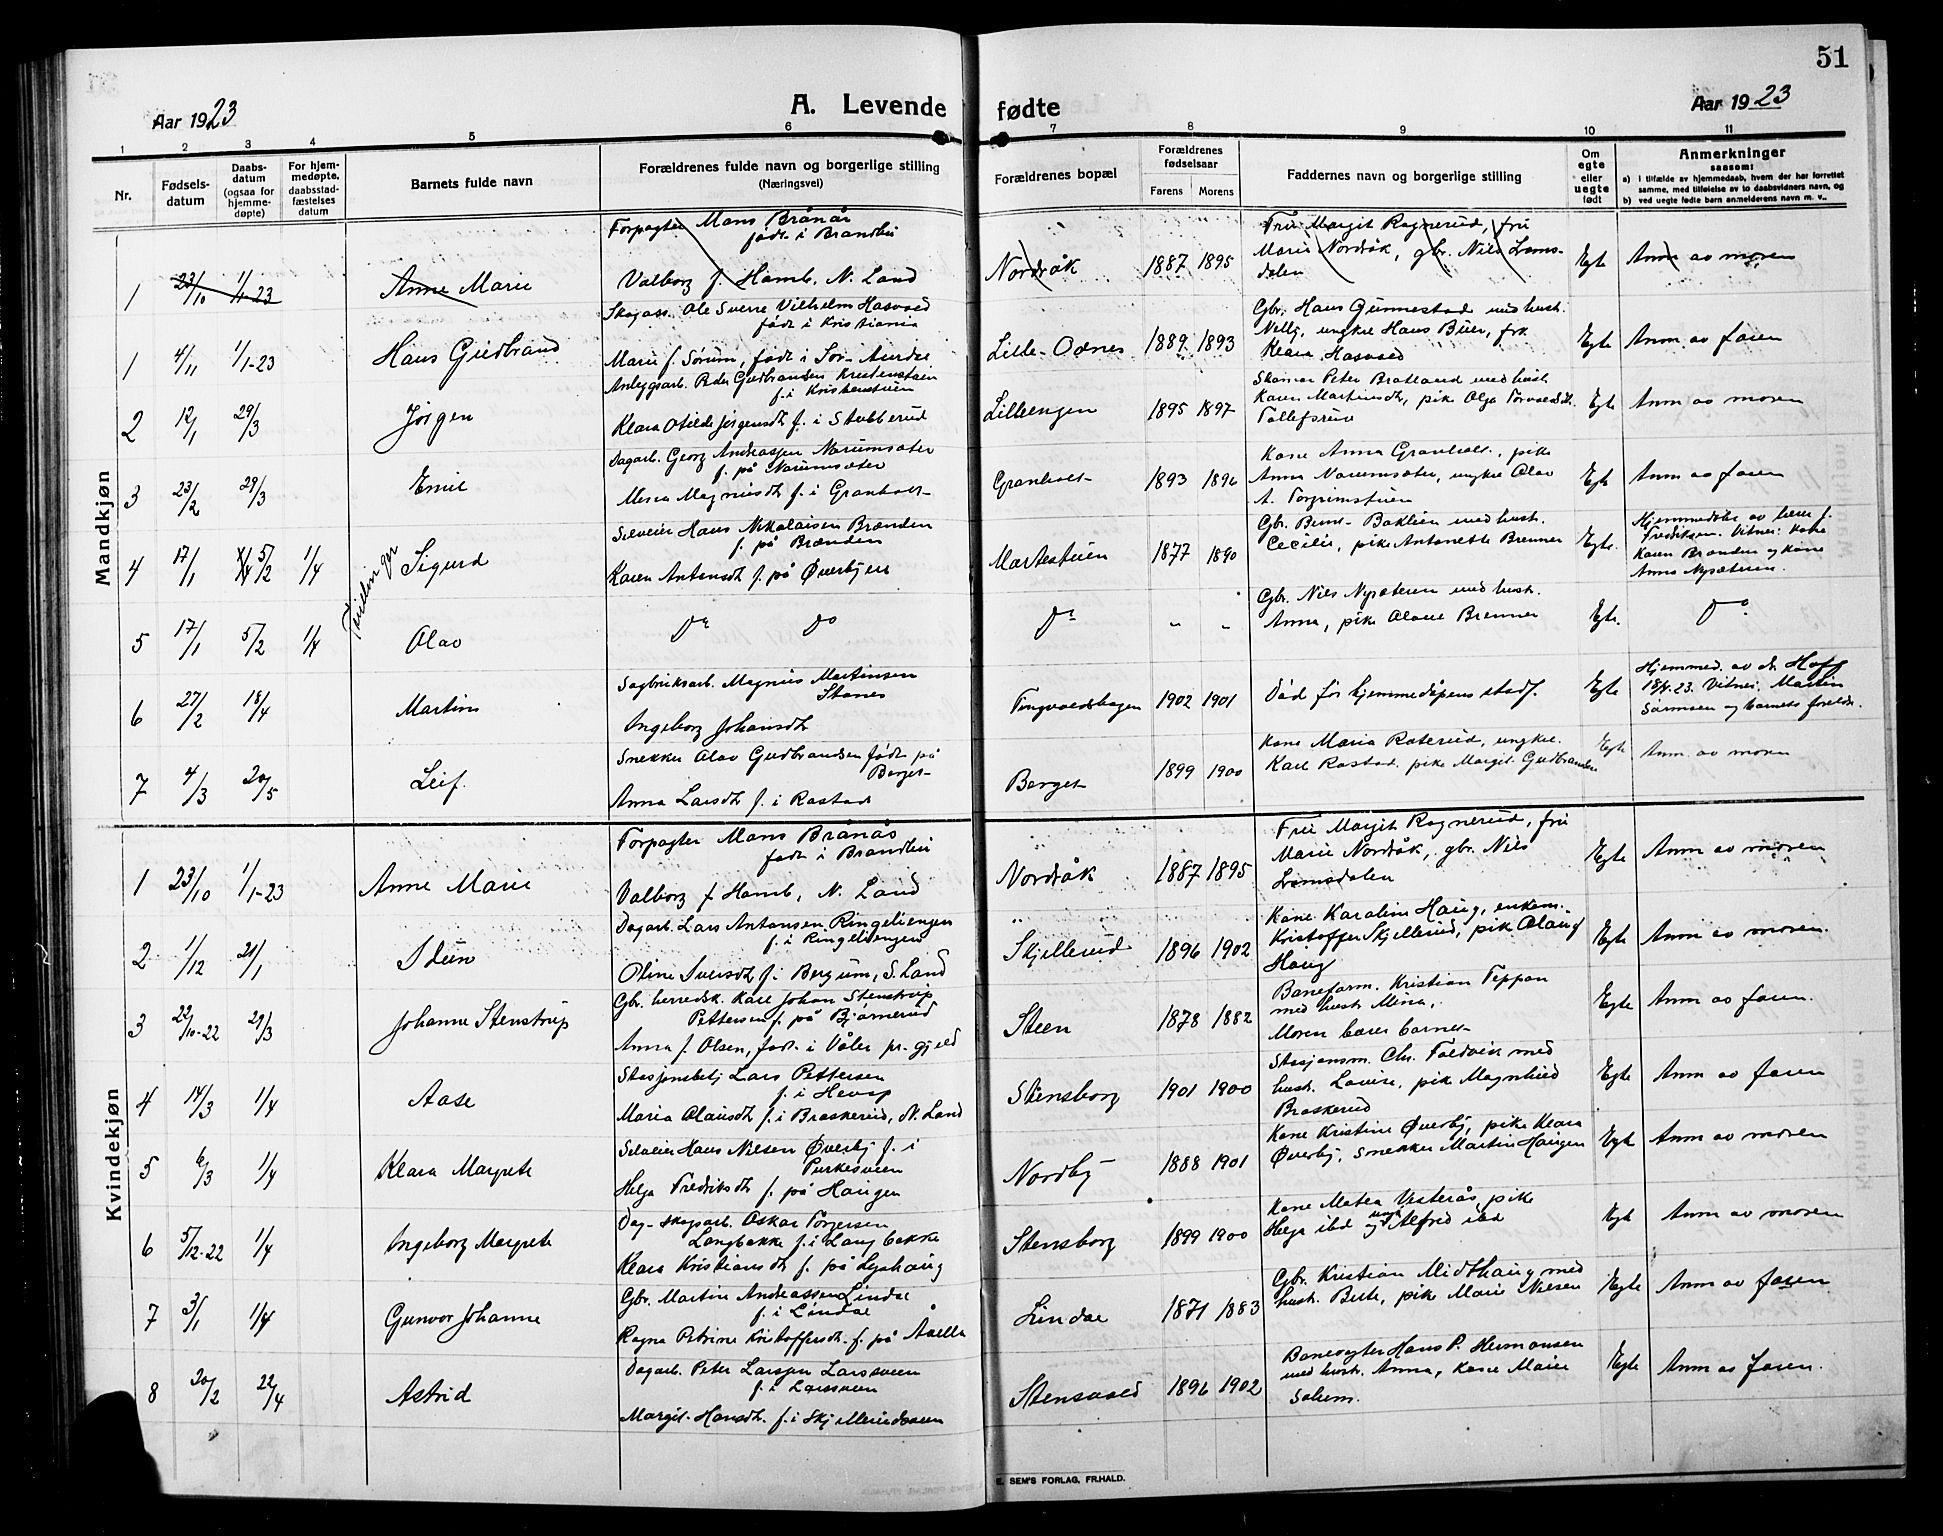 51
Aar 1923
A. Levende fødte
Aar 1923
1 2 3 4 5 6 7 8 9 10 11
Nr.
Fødsels-
datum
Daabs-
datum
(ogsaa for
hjemme-
døpte)
For hjem-
medøpte,
daabsstad-
fæstelses
datum
Barnets fulde navn
Forældrenes fulde navn og borgerlige stilling
(Næringsvei)
Forældrenes bopæl
Forældrenes
fødselsaar
Farens Morens
Faddernes navn og borgerlige stilling
Om
egte
eller
uegte
født
Anmerkninger
saasom:
a) i tilfælde av hjemmedaab, hvem der har forrettet
samme, med tilføielse av to daabsvidners navn, og
b) ved uegte fødte barn anmelderens navn m. v..
Mandkjøn
Forpagter Mons Brånås
født i Brandbu
1 23/10 1/1-23 Anne Marie
Valborg f. Hamb, N. Land
Nordråk 1887 1895
Fru Margit Ragnerud, fru
Marie Nordråk, gbr. Nils Lomsdalen
Egte Anm av moren
Skogass. Ole Sverre Vilhelm Hasvold
født i Kristiania
1 4/11 1/1-23 Hans Gudbrand
Marie f. Sørum, født i Sør-Aurdal
Lille-Odnes 1889 1893
Gbr. Hans Gunnestad med hust.
Nelly, ungkar Hans Buer, frk
Klara Hasvold
Egte Anm. av faren
Anleggsarb. Peder Gudbrandsen Kristenstuen
f. i Kristenstuen
2 12/1 29/3 Jørgen
Klara Otilde Jørgensdt. f. i Stubberud
Lilleengen 1895 1897
Peter Bratland med hust.
Karen Martinsdt, pike Olga Torvaldsdt.
Tollefsrud
Egte Anm av moren
Dagarb. Georg Andreassen Narumsæter
f. på Narumsæter
3 23/2 29/3 Emil
Maria Magnusdt f. i Granholt
Granholt 1893 1896
Kone Anna Granholt, pike
Anna Narumsæter, ungkar Olav
A. Torgrimstuen
Egte Anm av faren
Selveier Hans Nikolaisen Brænden
f. på Brænden
4 17/1 5/2 1/4 Tvillinger Sigurd
Karen Antonsdt f. på Øverbyen
Martestuen 1877 1890
Gbr. Bernt Baklien med hust.
Cecilie, pike Antonette Brennen
Egte.
Hjemmedøbt av lærer f.
Fredriksen. Vitner: kone
Karen Brænden og kone
Anna Nysæteren.
5 17/1 5/2 1/4 Olav
Do Do
Do " "
Gbr. Nils Nysæteren med hust.
Anna, pike Olave Brennen
Egte. Do
Sagbruksarb. Magnus Martinsen
Stanes
6 27/2 18/4 Martin
Ingeborg Johansdt
Tingvoldshagen 1902 1901
Død før hjemmedåpens stadf.
Egte
Hjemmed. av dr. Hoff
18/4.23. Vitner: Martin
Sørensen og barnets foreldr.
Snekker Olav Gudbrandsen født på
Berget
7 4/3 20/5 Leif.
Anna Larsdt f. i Rastad
Berget 1899 1900
Kone Maria Raterud, ungkar
Karl Rastad. pike Margit Gudbrandsen
Egte Anm av moren
Kvindekjøn
Forpagter Mons Brånås
født i Brandbu
1 23/10 1/1-23 Anne Marie
Valborg f Hamb, N. Land
Nordråk 1887 1895
Frue Margit Ragnerud, fru
Marie Nordråk, gbr. Nils
Lomsdalen
Egte Anm av moren
Dagarb. Lars Antonsen Ringeliengen
f. i Ringeliengen
2 1/12 21/1 Idun
Oline Iversdt f. i Bergum, S. Land
Skjellerud 1896 1902
Kone Karoline Haug, enkem.
Kristoffer Skjellerud, pike Olaug
Haug
Egte Anm av moren.
Gbr. herredsk. Karl Johan Stenstrup
Pettersen f. på Bjørnerud
3 22/10-22 29/3 Johanne Stenstrup
Anna f. Olsen, født i Våler pr.gjeld
Steen 1878 1882
Baneform. Kristian Teppan
med hust Mina,
Moren bærer barnet
Egte Anm av faren.
Stasjonsbetj Lars Pettersen
f. i Hevsp
4 14/3 1/4 Aase
Maria Olausdt f. i Braskerud, N. Land
Stensborg 1901 1900
Stasjonsm. Chr. Foldvik med
hust. Lovise, pike Magnhild
Braskerud
Egte Anm av faren
Selveier Hans Nilsen Øverby f. i
Purkesveen
5 6/3 1/4 Klara Margrete
Helga Fredriksdt f. på Haugen
Nordby 1888 1901
Kone Kristine Øverby, pike Klara
Øverby, snekker Martin Haugen
Egte Anm av moren
Dag-skogsarb. Oskar Torgersen
Langbakke f. i Langbakke
6 5/12-22 1/4 Ingeborg Margrete
Klara Kristiansdt f. på Lyshaug
Stensborg 1899 1900
Kone Matea Vesterås, pike
Helga ibd og ungk Alfred ibd
Egte Anm av moren
Gbr. Martin Andreassen Lindal
f. i Lindal
7 3/1 1/4 Gunvor Johanne
Ragna Petrine Kristoffersdt. f. på Aaella
Lindal 1871 1883
Gbr. Kristian Midthaug med
hust. Berte, pike Marie Nielsen
Egte Anm av faren
Dagarb. Peter Larsen Larssveen
f. i Larssveen
8 20/2 22/4 Astrid
Margit Hansdt. f. i Skjellerudsveen
Stensvold 1896 1902
Banevogter Hans P. Hermansen
med hust. Anna, kone Marie
Solum.
Egte Anm av faren.
E. SEM'S FORLAG, FR.HALD.